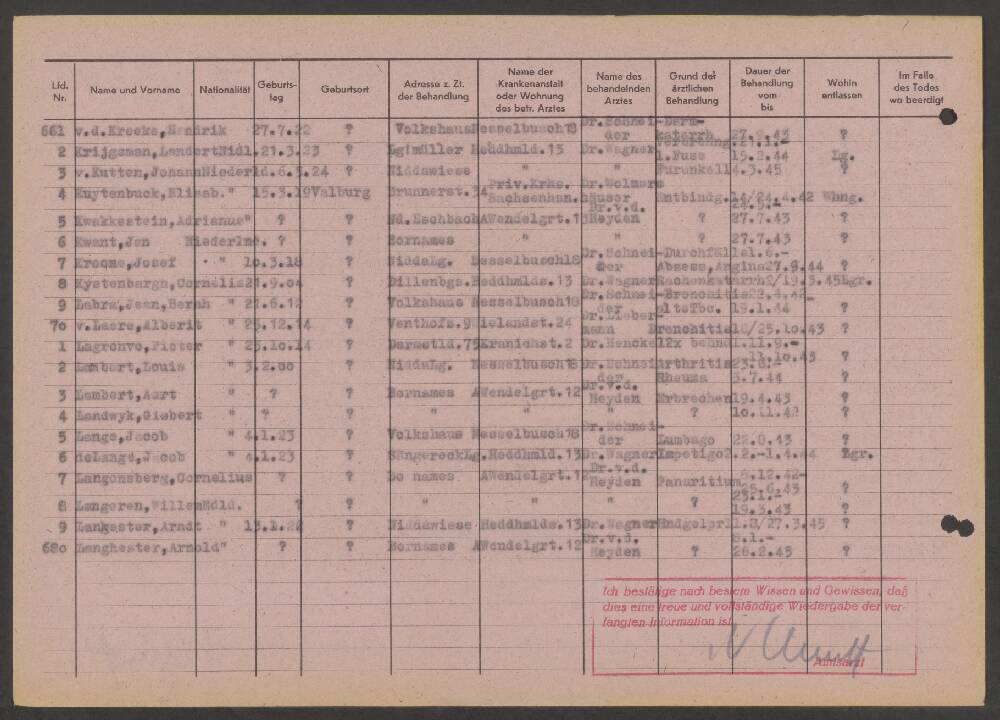 Lfd. Nr. Name und Vorname Nationalität Geburts-tag Geburtsort Adresse z. Zt. der Behandlung Name der Krankenanstalt oder Wohnung des betr. Arztes Name des behandelnden Arztes Grund der ärztlichen Behandlung Dauer der Behandlung vom bis Wohin entlassen Im Falle des Todes wo beerdigt
661 v.d.Kreeke,Hendrik 27.7.22 ? Volkshaus Nesselbusch18 Dr.Schnei-der Darm-katarrh 27.9.43 ?
2 Krijgsman,Landert Ndl. 21.3.23 ? Lgimüller Heddhmld.13 Dr.Wagner l.Fuss 15.2.44 Lg.
3 v.Kutten,Johann Niederld. 8.3.24 ? Niddawiese " " Furunkel 14.3.45 ?
4 Kuytenbuck,Elisab. " 15.3.19 Valburg Brunnerst.34 Priv.Krhs. Sachsenhau. Dr.Wolmers Entbindg. 14/24.4.42 Whng.
5 Kwakkestein,Adrianus " ? ? Nd.Eschbach AWendelgrt.13 Dr.v.d. Heyden ? 27.7.43 ?
6 Kwant,Jan Niederlnd. ? ? Bornames " " ? 27.7.43 ?
7 Kroone,Josef " 10.3.18 ? NiddaLg. Nesselbusch18 Dr.Schnei-der Durchfälle Abszess,Angina 1.6.- 27.9.44 ?
8 Kystenbargh,Cornelis 21.9.04 ? Dillenbgs. Heddhmlds.13 Dr.Wagner Rachenkatarrh 2/19.3.45 Lgr.
9 Labra,Jean,Bernh " 21.6.12 ? Volkshaus Nesselbusch18 Dr.Schnei-der Bronchitis alteTbc. 22.4.42- 15.1.44 ?
70 v.Laere,Alberit " 25.12.14 ? Venthofs.9 Wielandst.24 Dr.Lieber-mann Bronchitis 18/25.10.43 ?
1 Lagronvo,Pieter " 25.10.14 ? Darmstld.75 Kranichst.2 Dr.Henckel 2x behnd. 1.11.9.- 11.10.43 ?
2 Lambert,Louis " 3.2.00 ? NiddaLg. Nesselbusch18 Dr.Schneider Arthritis Rheuma 23.6.- 3.7.44 ?
3 Lambert,Aart " ? ? Bornames AWendelgrt.12 Dr.v.d. Heyden Erbrechen 19.4.43 ?
4 Landwyk,Gisbert " ? ? " " " ? 10.11.42 ?
5 Lange,Jacob " 4.1.23 ? Volkshaus Nesselbusch18 Dr.Schnei-der Lumbago 22.6.43 ?
6 deLange,Jacob " 4.1.23 ? SängereckLg. Heddhmld.13 Dr.Wagner Impetigo 2.2.-1.4.44 Lgr.
7 Langensberg,Cornelius ? ? Bo names AWendelgrt.12 Dr.v.d. Heyden Panaritium 8.12.42- 25.6.43 ?
8 Langeren,Willem Ndld. ? ? " " " ? 23.1.- 19.3.43 ?
9 Lankaster,Arndt " 13.1.22 ? Niddawiese Heddhmlds.13 Dr.Wagner Hndgelprl 1.2/27.3.45 ?
680 Langhester,Arnold " ? ? Bornames AWendelgrt.12 Dr.v.d. Heyden ? 6.1.- 26.2.45 ?
Ich bestätige nach bestem Wissen und Gewissen, daß
dies eine treue und vollständige Wiedergabe der ver-
langten Information ist.
Amtsarzt